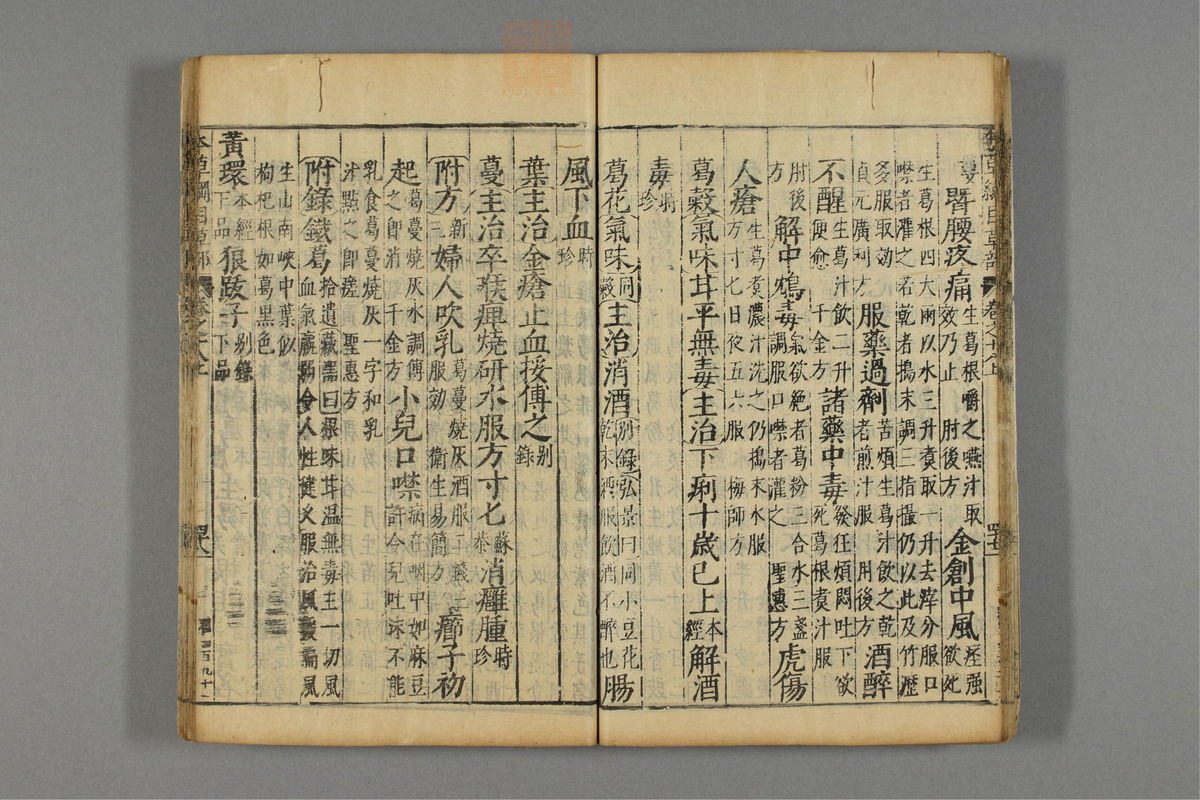 本草綱目草部 卷之十八上
臀腰疼痛 生葛根嚼之嚥汁取效乃止 肘後方 金創中風 痙强欲死
生葛根四大兩以水三升煑取一升去滓分服口噤者灌之若乾者搗末調三指撮仍以此及竹瀝
多服取效 貞元廣利方 服藥過劑 苦煩生葛汁飲之乾者煎汁服 肘後方 酒醉
不醒 生葛汁飲二升便愈 千金方 諸藥中毒 發狂煩悶吐下欲死葛根煑汁服
肘後方 解中鴆毒 氣欲絶者葛粉三合水三盞調服口噤者灌之 聖惠方 虎傷
人瘡 生葛煑濃汁洗之仍搗末水服方寸匕日夜五六服 梅師方
葛穀氣味甘平無毒主治下痢十歲已上 本經 解酒
毒 時珍
葛花氣味 同穀 主治消酒 別錄弘景曰同小豆花乾末酒服飲酒不醉也 腸
風下血 時珍
葉主治金瘡止血挼傅之 别錄
蔓主治卒喉痺燒研水服方寸匕 蘇恭 消癰腫 時珍
附方 新三 婦人吹乳 葛蔓燒灰酒服二錢三服效 衛生易簡方 癤子初
起 葛蔓燒灰水調傅之即消 千金方 小兒口噤 病在咽中如麻豆許令兒吐沫不能
乳食葛蔓燒灰一字和乳汁點之即瘥 聖惠方
附錄鐵葛 拾遺藏器曰根味甘温無毒主一切風血氣羸弱令人性健久服治風緩偏風
生山南峽中葉似枸杞根如葛黑色
黃環 本經下品 狼跋子 别錄下品
本草綱目草部 卷之十八上
四百九十